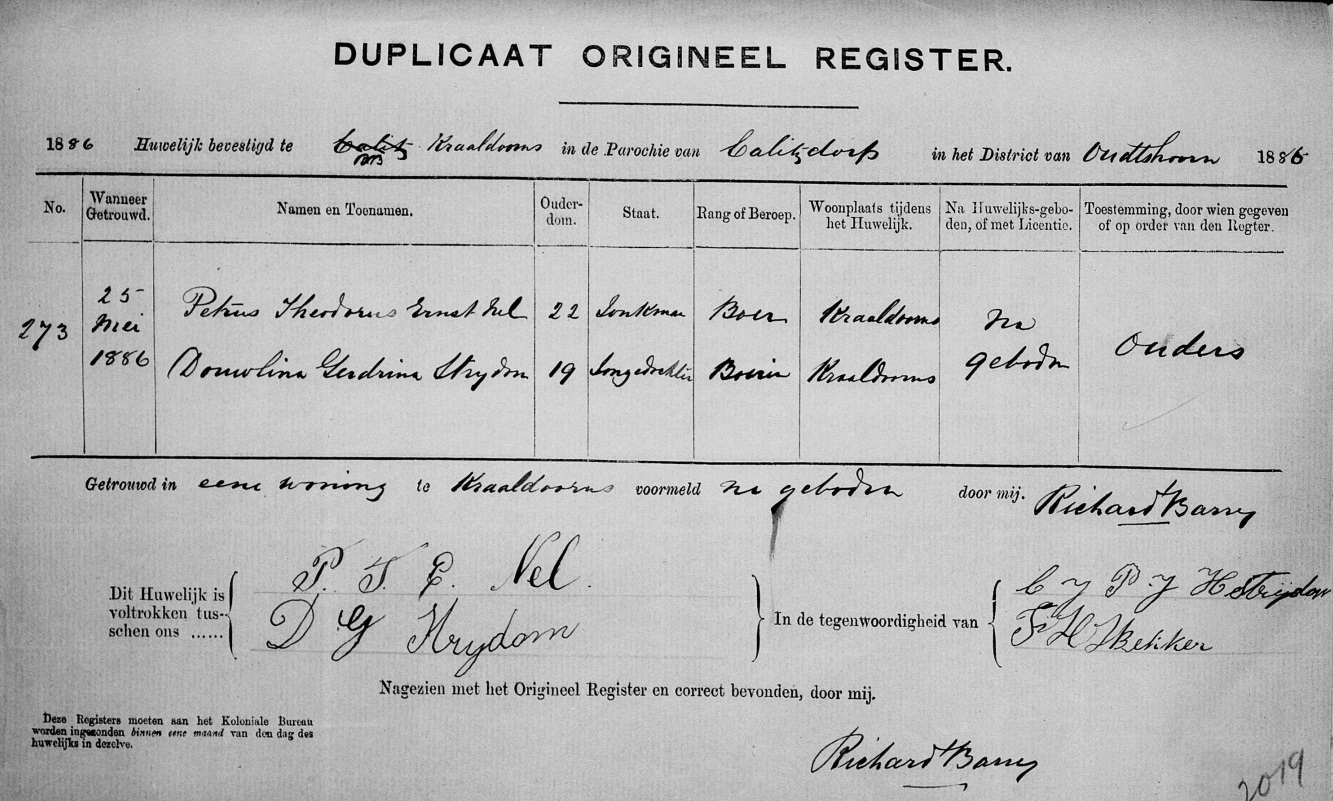 DUPLICAAT ORIGINEEL REGISTER.
1886 Huwelijk bevestigd te Kraaldoorns in de Parochie van Calitzdorp in het District van Oudtshoorn 1886
No. Wanneer Getrouwd. Namen en Toenamen. Ouder-dom. Staat. Rang of Beroep. Woonplaats tijdens het Huwelijk. Na Huwelijks-gebo-den, of met Licentie. Toestemming, door wien gegeven of op order van den Regter.
273 25 Mei 1886 Petrus Theodorus Ernst Nel 22 Jonkman Boer Kraaldoorns Na geboden Ouders
Douwlina Gerdrina Strydom 19 Jongedochter Boerin Kraaldoorns
Getrouwd in eene woning te Kraaldoorns voormeld na geboden door mij. Richard Barry
Dit Huwelijk is voltrokken tus-schen ons ......
P. T. E. Nel.
D G Strydom
In de tegenwoordigheid van
C J P J H Strijdom
F H Bekker
Nagezien met het Origineel Register en correct bevonden, door mij.
Deze Registers moeten aan het Koloniale Bureau
worden ingezonden binnen eene maand van den dag des
huwelijks in dezelve.
Richard Barry
2019